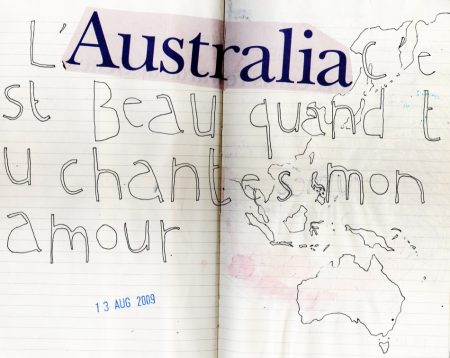 L'Australia c e
st Beau quand t
u chantes mon
amour
13 AUG 2009